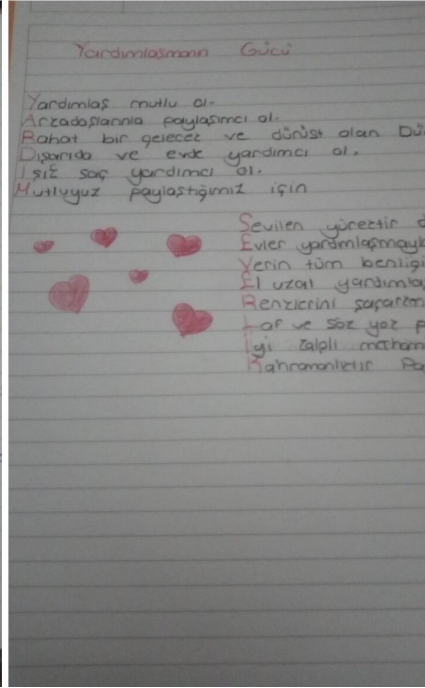 Yardımlaşmanın Gücü
Yardımlaş mutlu ol.
Arkadaşlarınla paylaşımcı ol.
Rahat bir gelecek ve dürüst olan Dü
Dışarıda ve evde yardımcı ol.
Işık saç yardımcı ol.
Mutluyuz paylaştığımız için
Sevilen yürektir
Evler yardımlaşmayl
Verin tüm benliği
El uzat yardımla
Renklerini saçarım
Laf ve söz yok p
İyi kalpli
Kahramanlıktır Pa